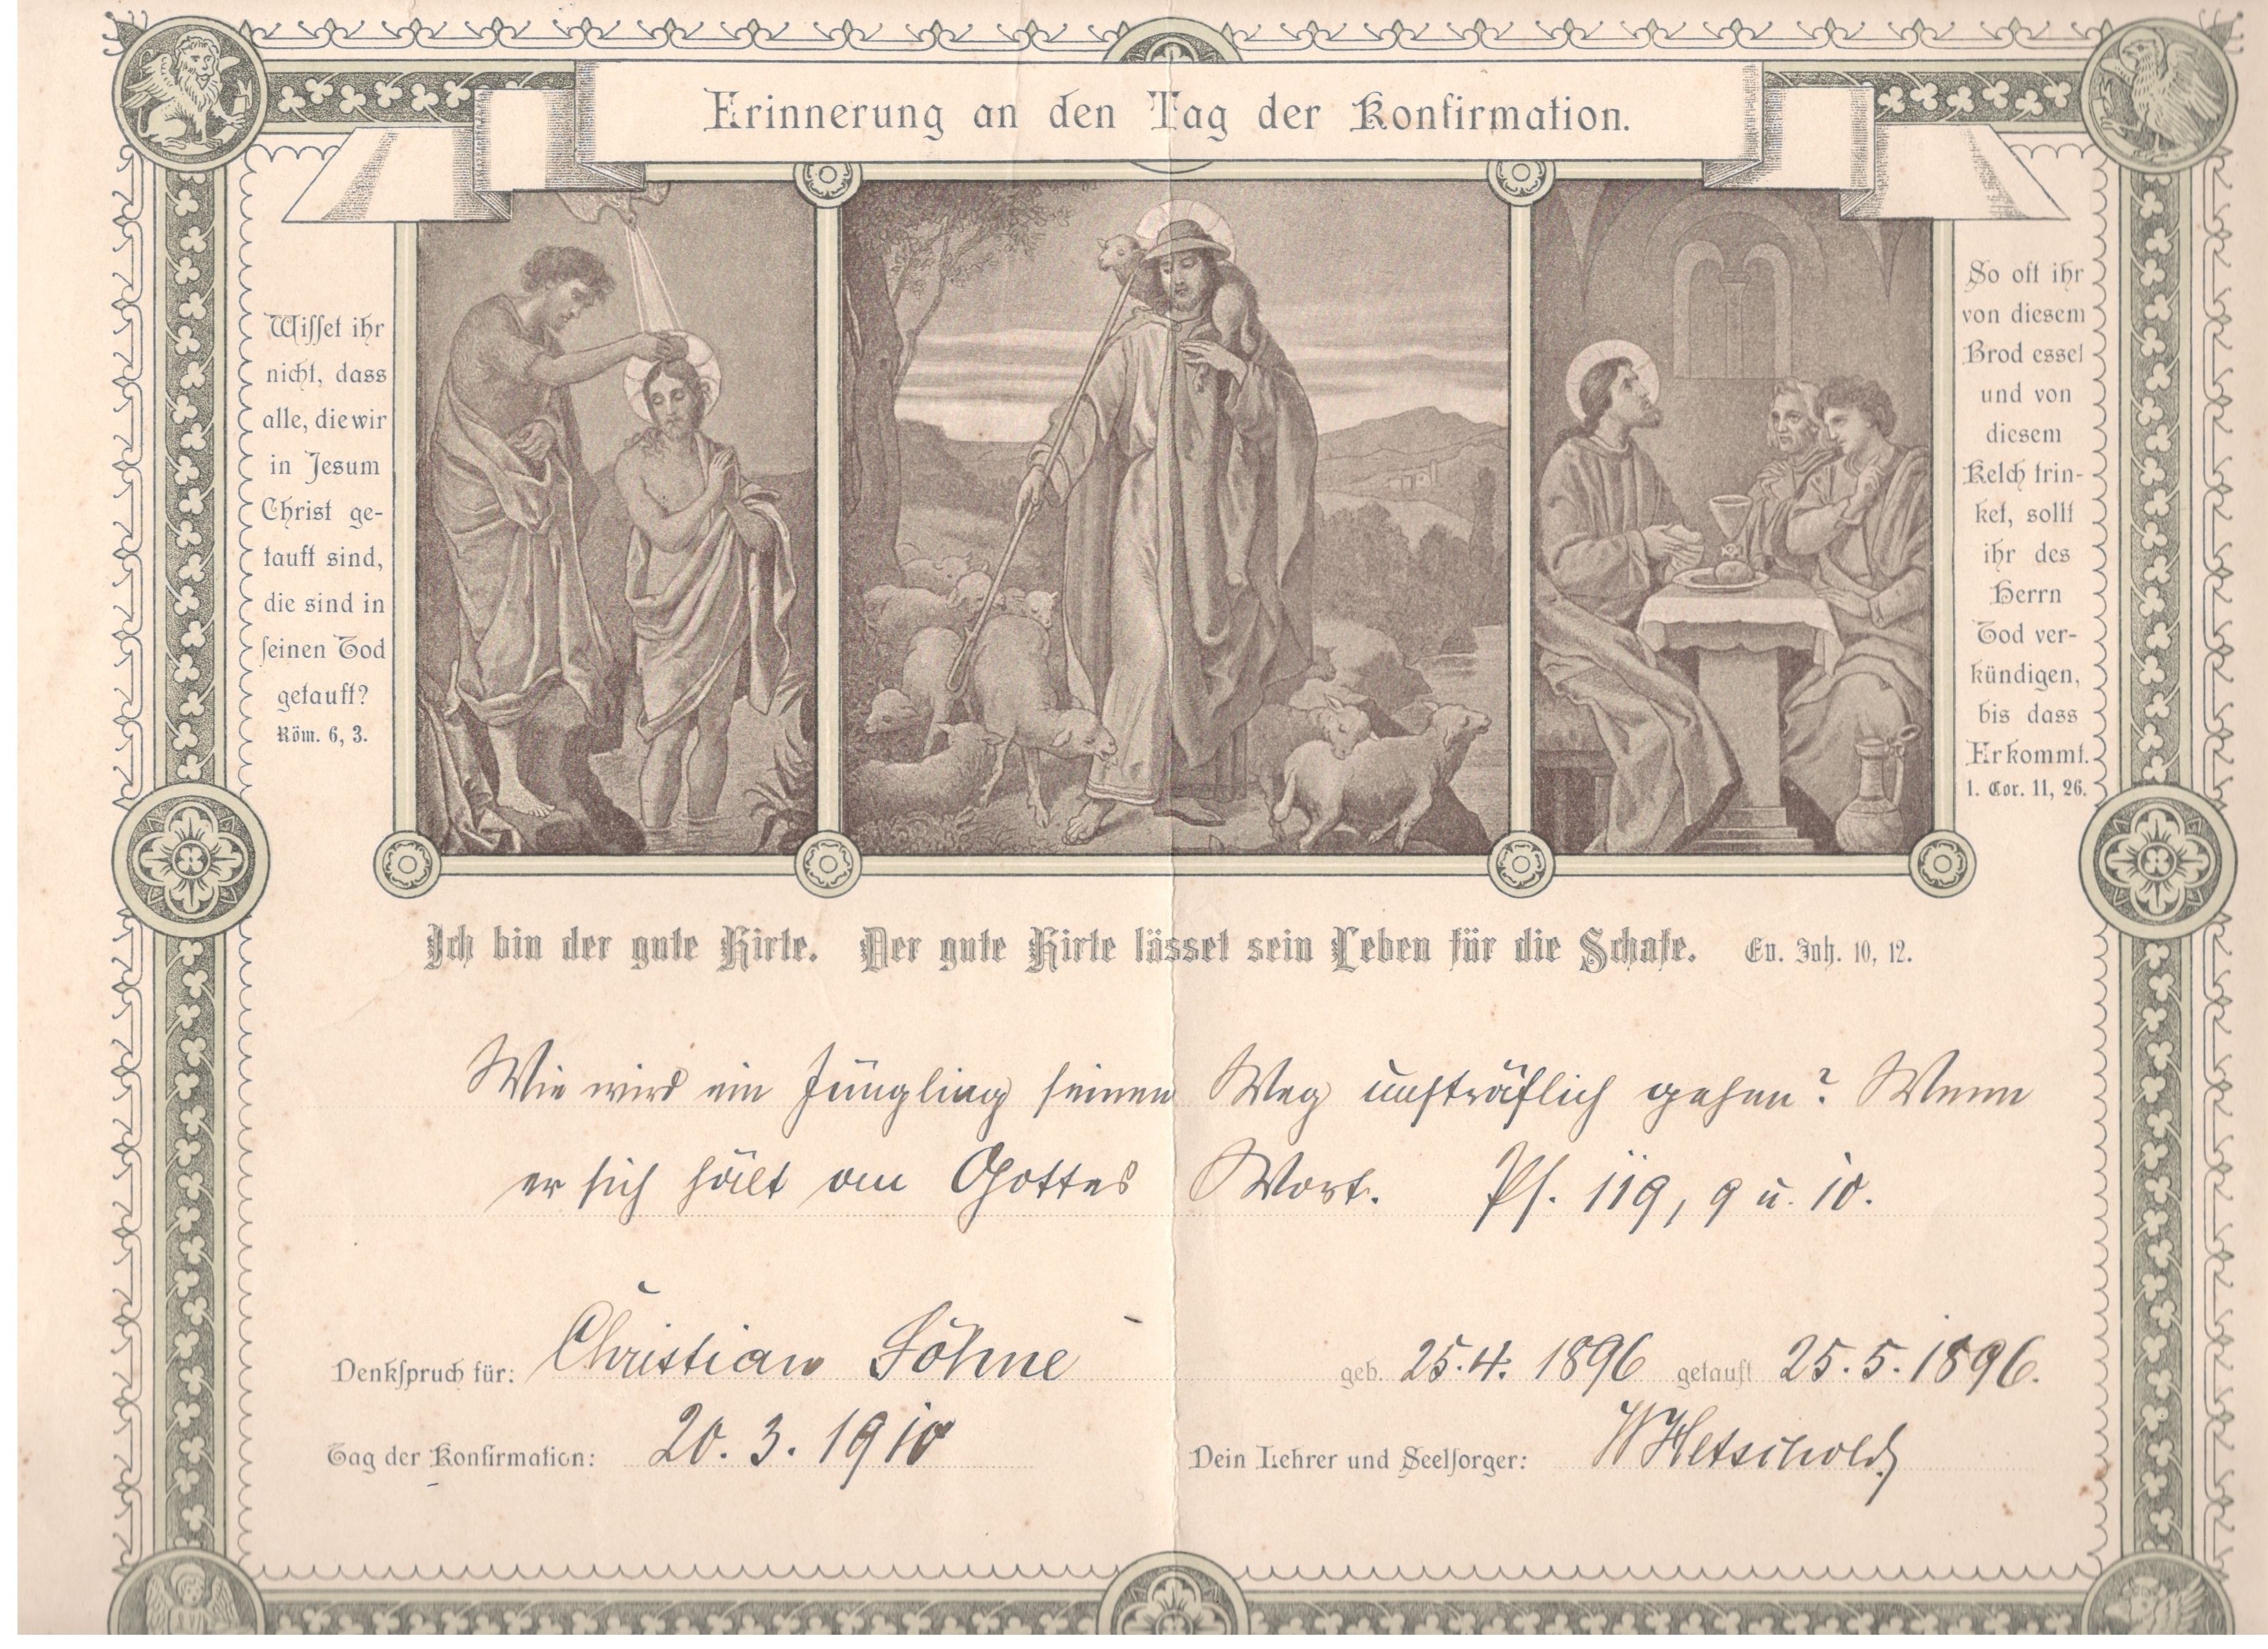 Erinnerung an den Tag der Konfirmation.
Wiſſet ihr
nicht, dass
alle, die wir
in Jesum
Christ ge-
tauft sind,
die sind in
ſeinen Tod
getauft?
Röm. 6, 3.
So oft ihr
von diesem
Brod esset
und von
diesem
Kelch trin-
ket, sollt
ihr des
Herrn
Tod ver-
kündigen,
bis dass
Er kommt.
1. Cor. 11, 26.
Ich bin der gute Hirte. Der gute Hirte lässet sein Leben für die Schafe. Ev. Joh. 10, 12.
Wie wird ein Jüngling seinen Weg unsträflich gehen? Wenn
er sich hält an Gottes Wort. Ps. 119, 9 u. 10.
Denkſpruch für: Christian Söhne geb. 25.4. 1896 getauft 25.5.1896.
Tag der Konfirmation: 20.3.1910 Dein Lehrer und Seelſorger: